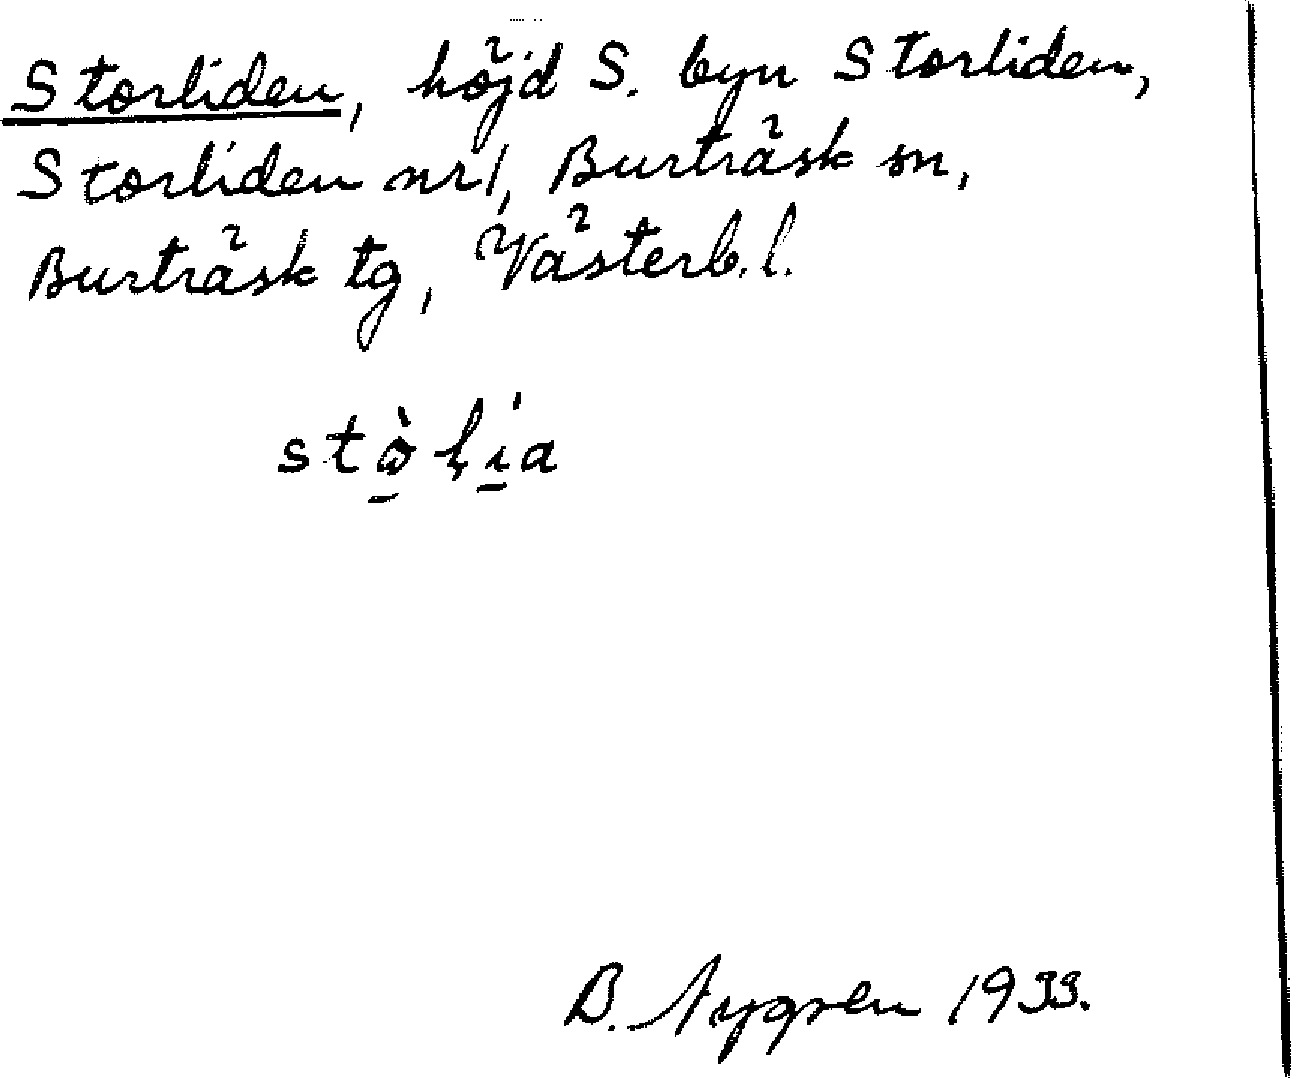 Storliden, höjd S. byn Storliden,
Storliden nr 1, Burträsk sn,
Burträsk tg, Västerb. l.
B. Nygren 1933.